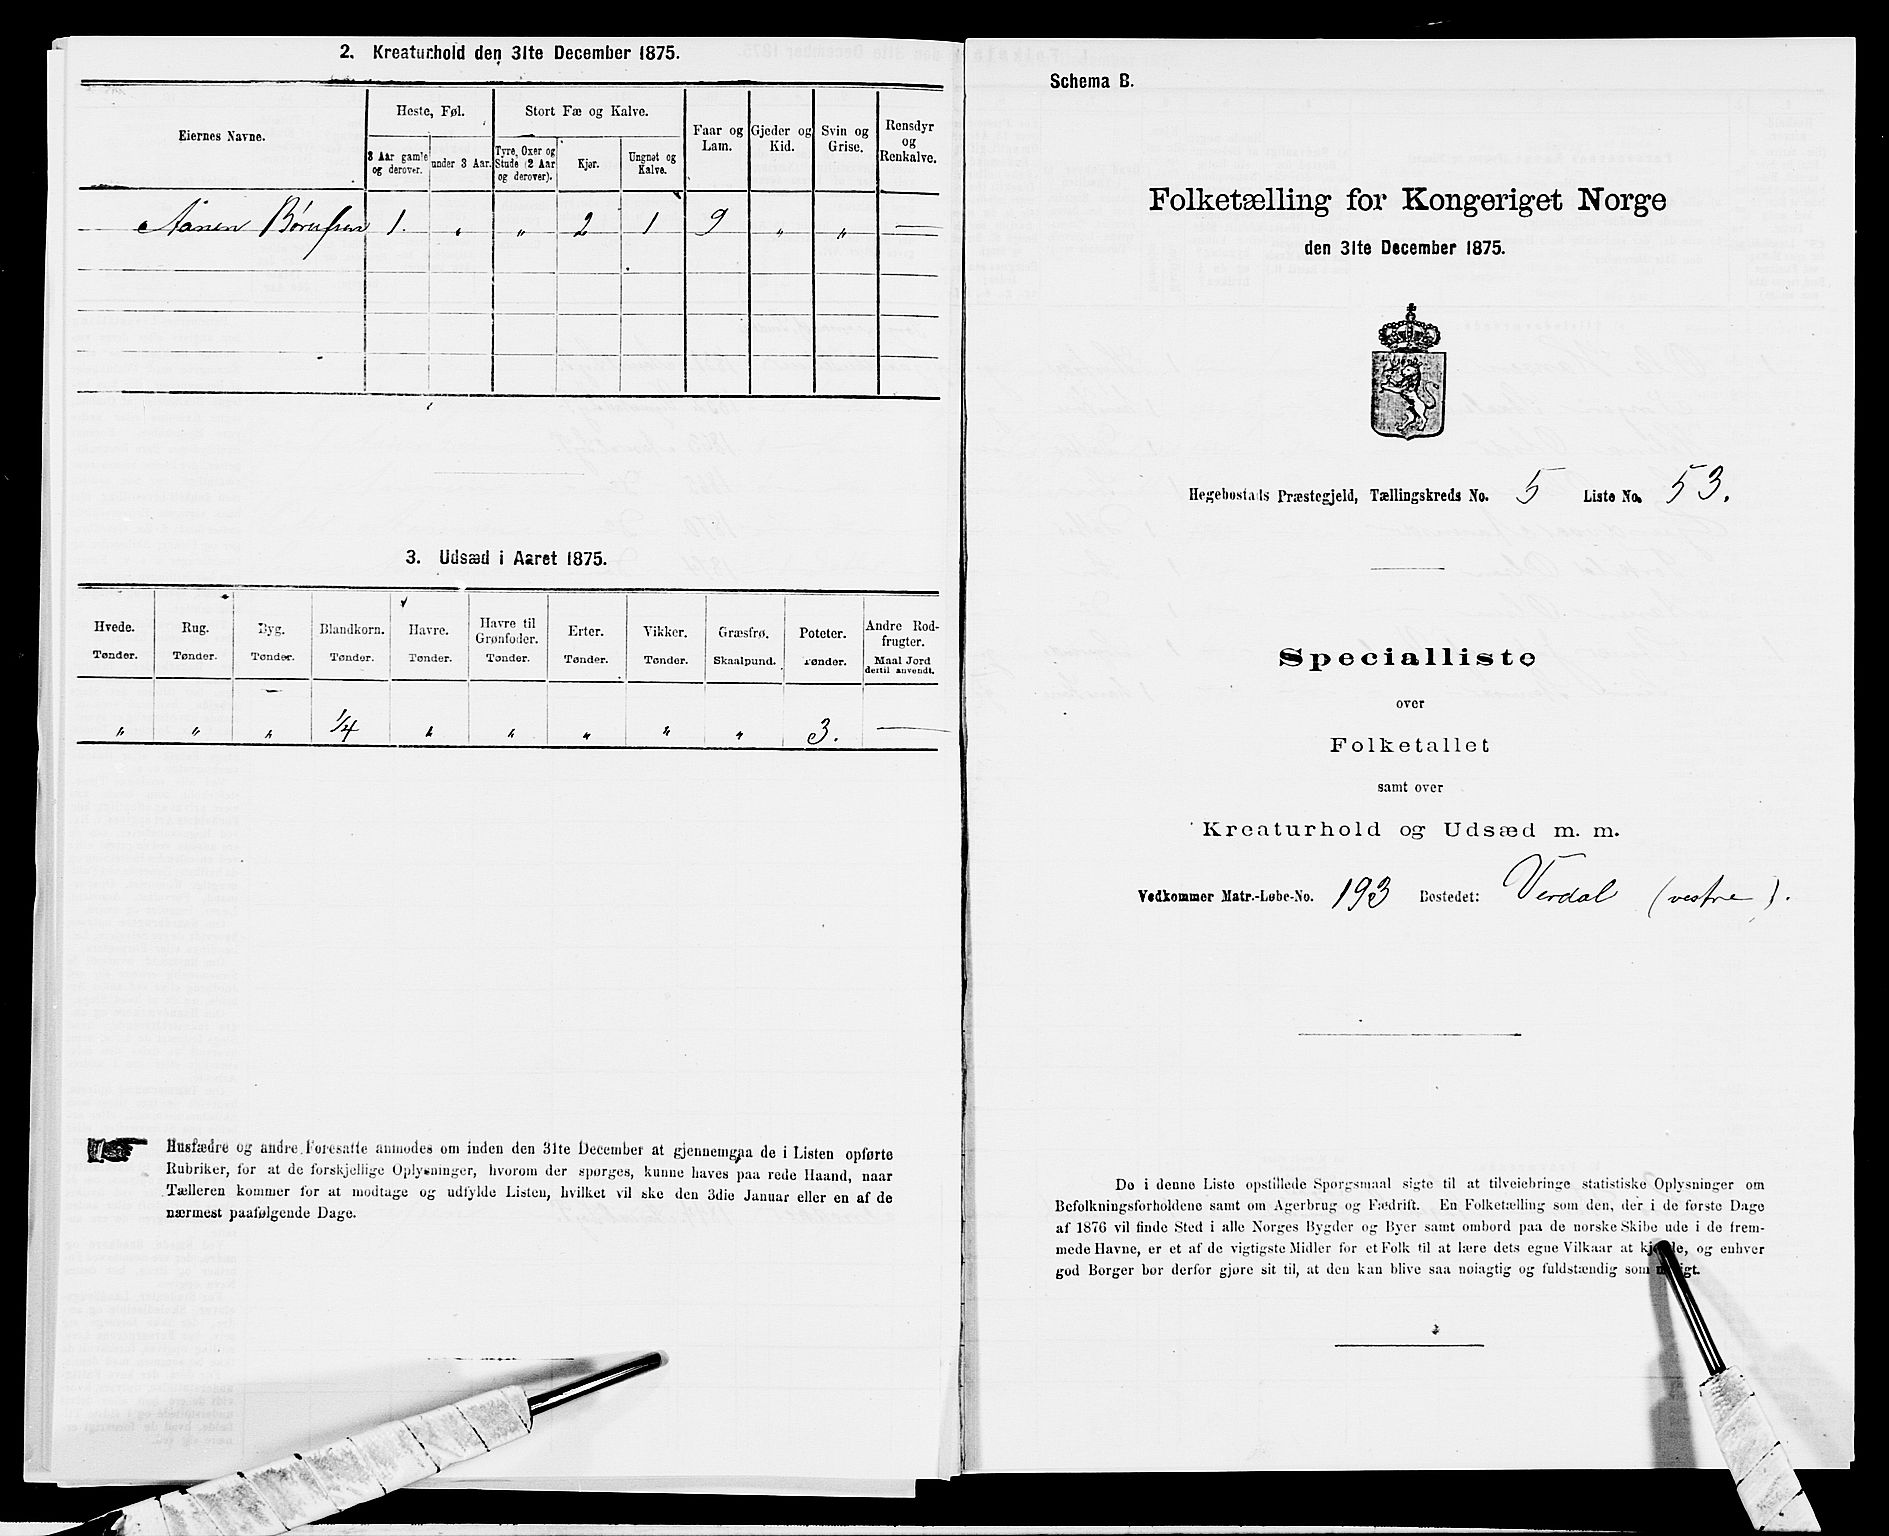 2. Kreaturhold den 31te December 1875.
Eiernes Navne.
Heste, Føl.
Stort Fæ og Kalve.
Faar og Lam.
Gjeder og Kid.
Svin og Grise.
Rensdyr og Renkalve.
3 Aar gamle og derover.
under 3 Aar.
Tyre, Oxer og Stude (2 Aar og derover).
Kjør.
Ungnøt og Kalve.
Aanen 1. „ „ 2 1 9 „ „ —
3. Udsæd i Aaret 1875.
Hvede. Rug. Byg. Blandkorn. Havre. Havre til Grønfoder. Erter. Vikker. Græsfrø. Poteter. Andre Rodfrugter.
Tønder. Tønder. Tønder. Tønder. Tønder. Tønder. Tønder. Tønder. Skaalpund. Tønder. Maal Jord dertil anvendt.
„ „ „ 1/4 „ „ „ „ „ 3. —
Husfædre og andre Foresatte anmodes om inden den 31te December at gjennemgaa de i Listen opførte
Rubriker, for at de forskjellige Oplysninger, hvorom der spørges, kunne haves paa rede Haand, naar
Tælleren kommer for at modtage og udfylde Listen, hvilket vil ske den 3die Januar eller en af de
nærmest paafølgende Dage.
Schema B.
Folketælling for Kongeriget Norge
den 31te December 1875.
Hegebostads Præstegjeld, Tællingskreds No. 5 Liste No. 53.
Specialliste
over
Folketallet
samt over
Kreaturhold og Udsæd m. m.
Vedkommer Matr.-Løbe-No. 193 Bostedet: Verdal (vestre).
De i denne Liste opstillede Spørgsmaal sigte til at tilveiebringe statistiske Oplysninger om
Befolkningsforholdene samt om Agerbrug og Fædrift. En Folketælling som den, der i de første Dage
af 1876 vil finde Sted i alle Norges Bygder og Byer samt ombord paa de norske Skibe ude i de frem-
mede Havne, er et af de vigtigste Midler for et Folk til at lære dets egne Vilkaar at kjende, og enhver
god Borger bør derfor gjøre sit til, at den kan blive saa nøiagtig og fuldstændig som muligt.